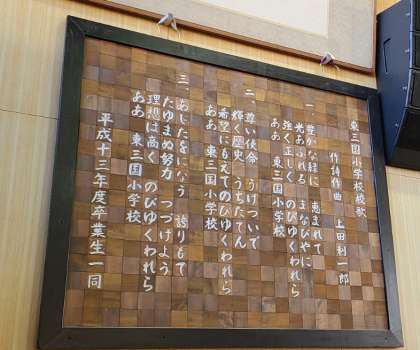 東三国小学校校歌
作詩作曲 上田利一郎
一、豊かな緑に 恵まれて
光あふれる まなびやに
強く正しく のびゆくわれら
ああ 東三国小学校
二、尊い使命 うけついで
輝く歴史 うちたてん
希望にもえて のびゆくわれら
ああ 東三国小学校
三、あしたをになう 誇りもて
たゆまぬ努力 つづけよう
理想は高く のびゆくわれら
ああ 東三国小学校
平成十三年度卒業生一同